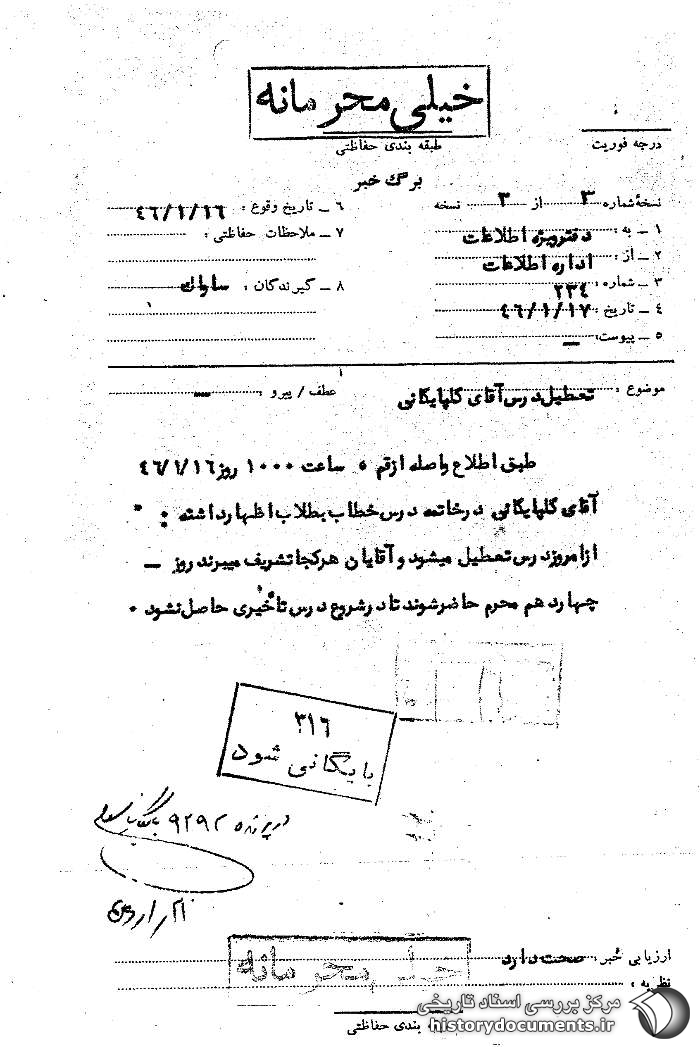 خیلی محرمانه
طبقه بندی حفاظتی
درجه فوریت
برگ خبر
نسخهٔ شماره ۳ از ۳ نسخه
۱ ــ به : دفترویژه اطلاعات
۲ ــ از : اداره اطلاعات
۳ ــ شماره : ۲۳۴
۴ ــ تاریخ : ۴۶/۱/۱۷
۵ ــ پیوست : ــ
۶ ــ تاریخ وقوع : ۴۶/۱/۱۶
۷ ــ ملاحظات حفاظتی :
۸ ــ گیرندگان : ساواک
موضوع : تعطیل درس آقای گلپایگانی
عطف / پیرو : ــ
طبق اطلاع واصله ازقم ٥ ساعت ۱۰۰۰ روز ۴۶/۱/۱۶
آقای گلپایگانی درخاتمه درس خطاب بطلاب اظهارداشته : "
ازامروزدرس تعطیل میشود و آقایان هرکجا تشریف میبرند روز ــ
چهاردهم محرم حاضرشوند تا درشروع درس تأخیری حاصل نشود ٠
۳۱۶
بایگانی شود
در پرونده ۹۲۹۲ بایگانی شود
ارزیابی خبر : صحت دارد
نظریه :
خیلی محرمانه
طبقه بندی حفاظتی
مرکز بررسی اسناد تاریخی
historydocuments.ir